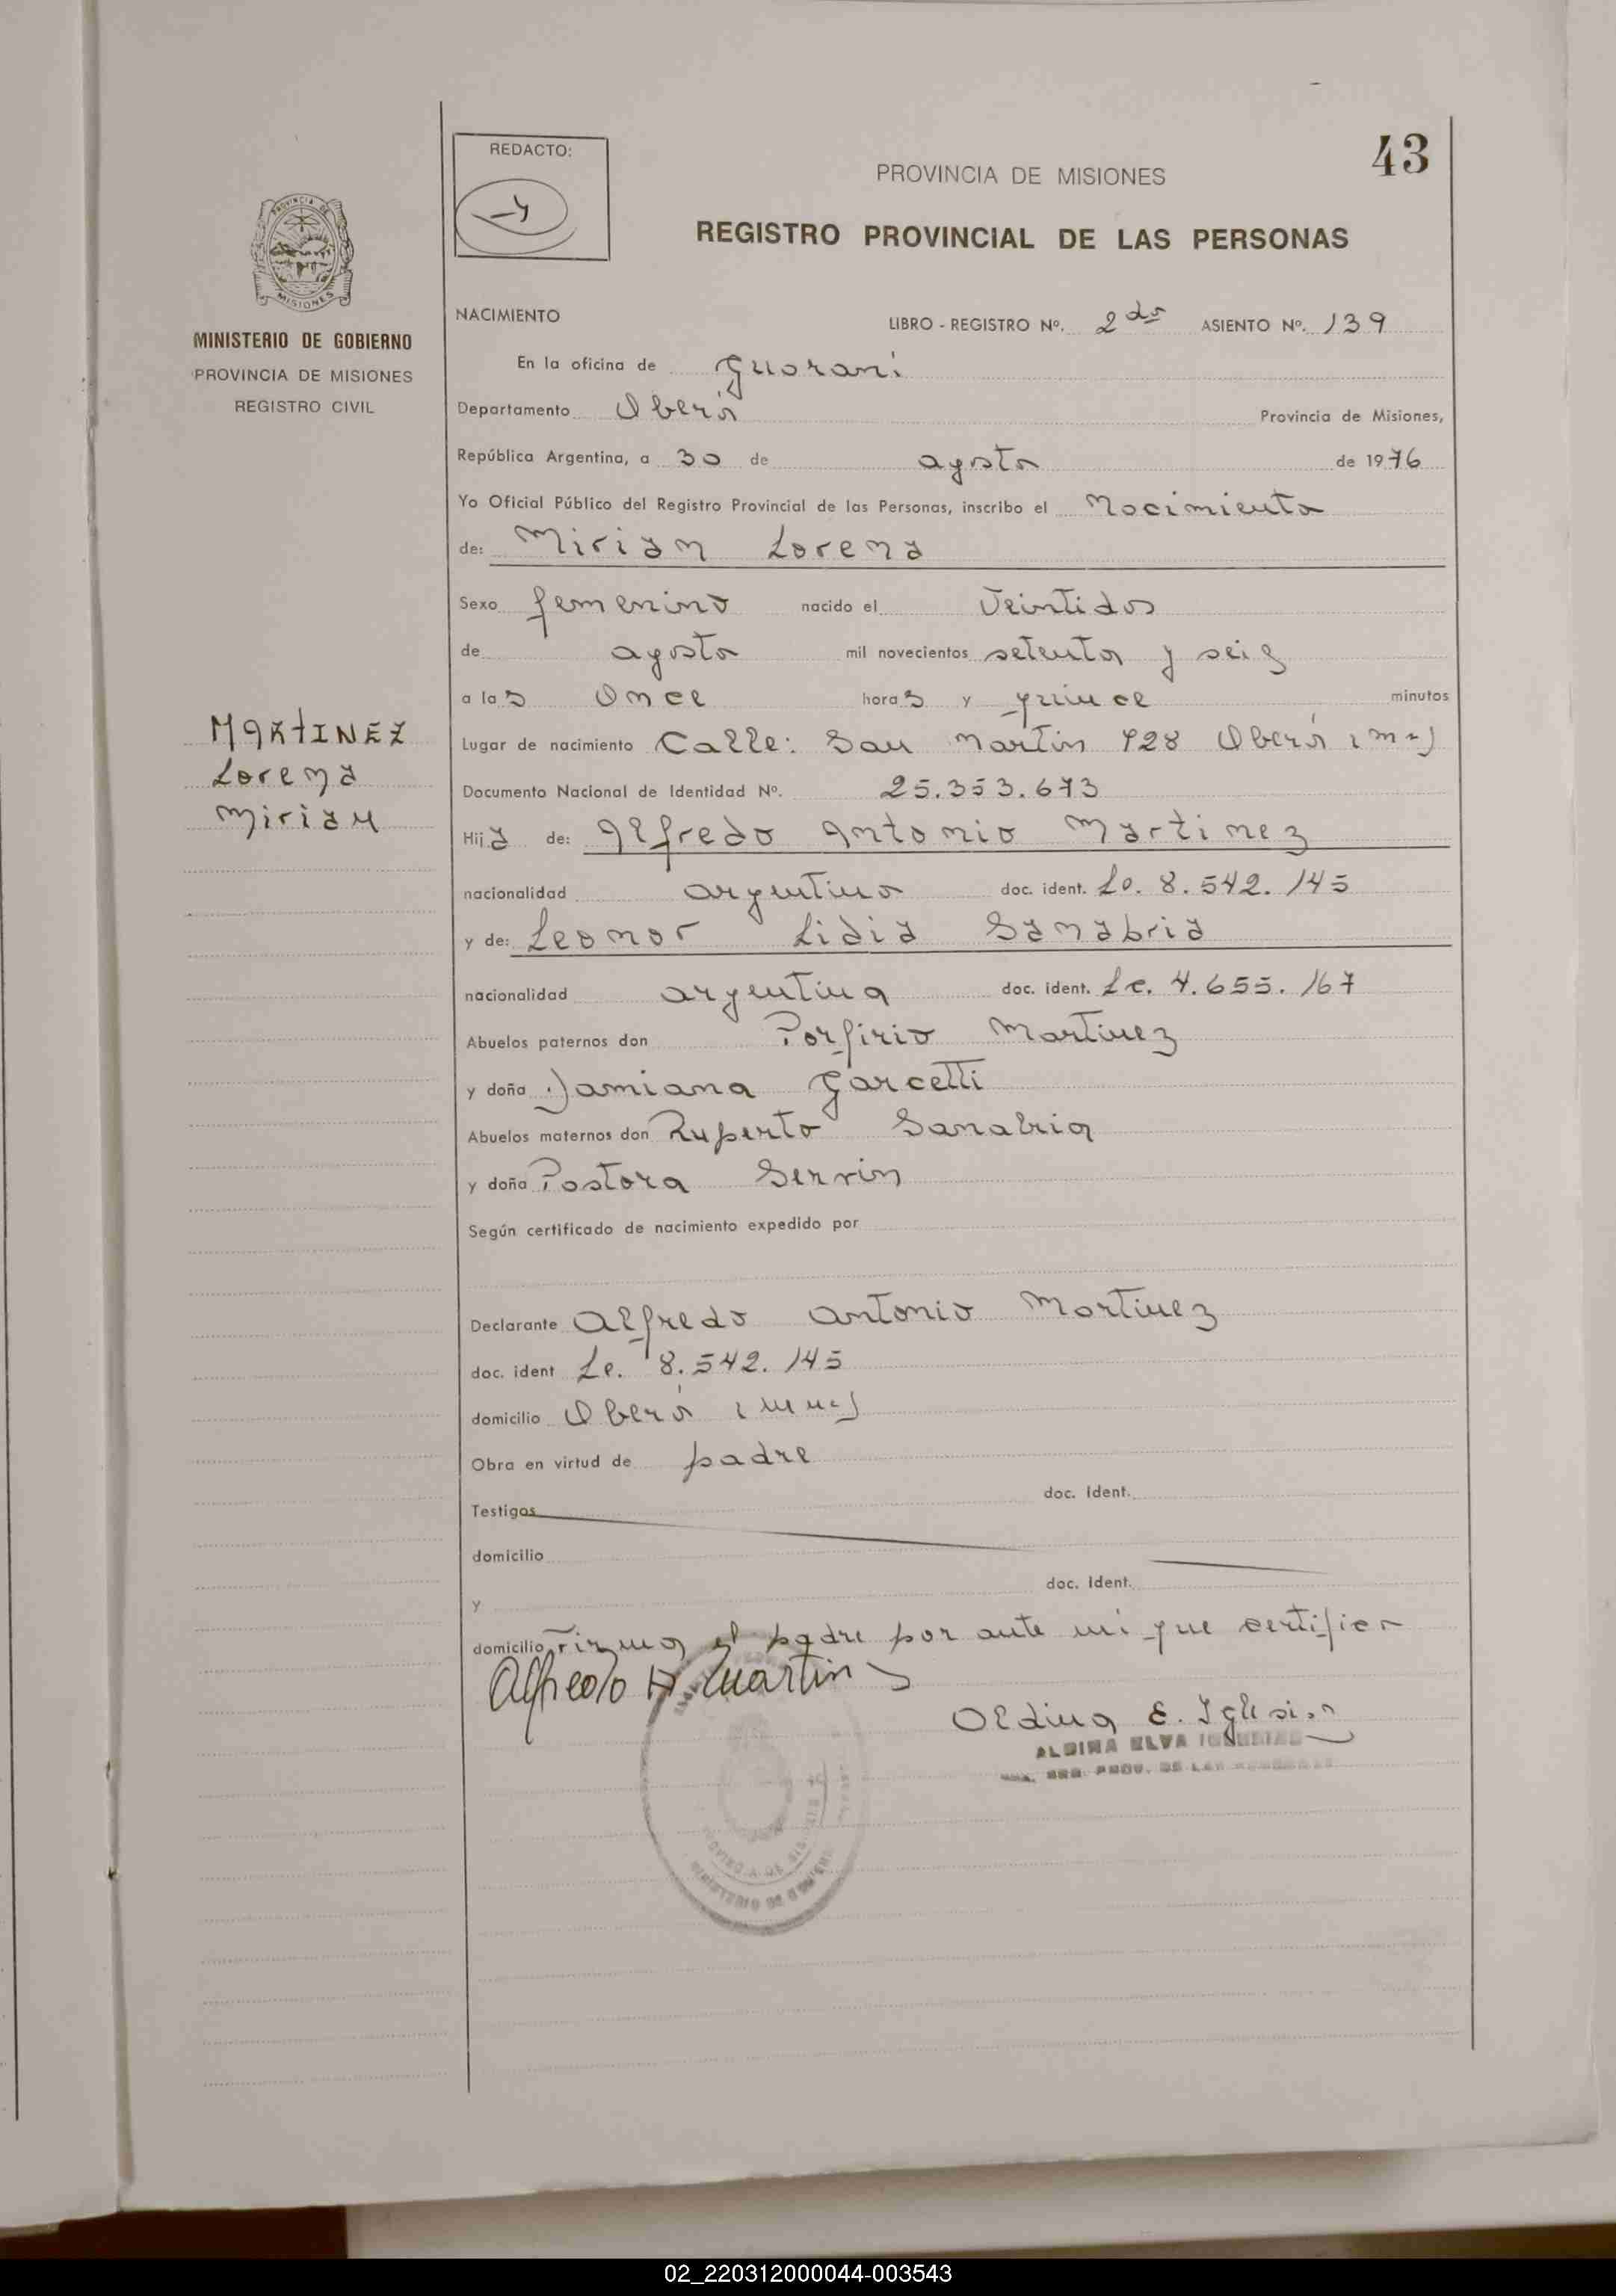 43
REDACTO:
PROVINCIA DE MISIONES
REGISTRO PROVINCIAL DE LAS PERSONAS
PROVINCIA DE
MISIONES
MINISTERIO DE GOBIERNO
PROVINCIA DE MISIONES
REGISTRO CIVIL
NACIMIENTO
LIBRO - REGISTRO Nº. 2do ASIENTO Nº. 139
En la oficina de Guaraní
Departamento Oberá Provincia de Misiones,
República Argentina, a 30 de agosto de 1976
Yo Oficial Público del Registro Provincial de las Personas, inscribo el Nacimiento
de: Miriam Lorena
Sexo femenino nacido el Veintidos
de agosto mil novecientos setenta y seis
a las Once horas y quince minutos
MARTINEZ
Lorena
Miriam
Lugar de nacimiento Calle: San Martín 728 Oberá (Mnes)
Documento Nacional de Identidad Nº. 25.353.673
Hija de: Alfredo Antonio Martinez
nacionalidad argentino doc. ident. Le. 8.542.145
y de: Leonor Lidia Sanabria
nacionalidad argentina doc. ident. Lc. 4.655.167
Abuelos paternos don Porfirio Martinez
y doña Damiana Garcetti
Abuelos maternos don Ruperto Sanabria
y doña Pastora Servin
Según certificado de nacimiento expedido por
Declarante Alfredo Antonio Martinez
doc. ident Le. 8.542.145
domicilio Oberá (Mnes)
Obra en virtud de padre
doc. Ident.
Testigos
domicilio
doc. Ident.
y
domicilio Firma el padre por ante mi que certifico
Alfredo A. Martinez
Aldina E. Iglesias
ALDINA ELVA IGLESIAS
REG. PROV. DE LAS PERSONAS
PROVINCIA DE MISIONES
MINISTERIO DE GOBIERNO
02_220312000044-003543